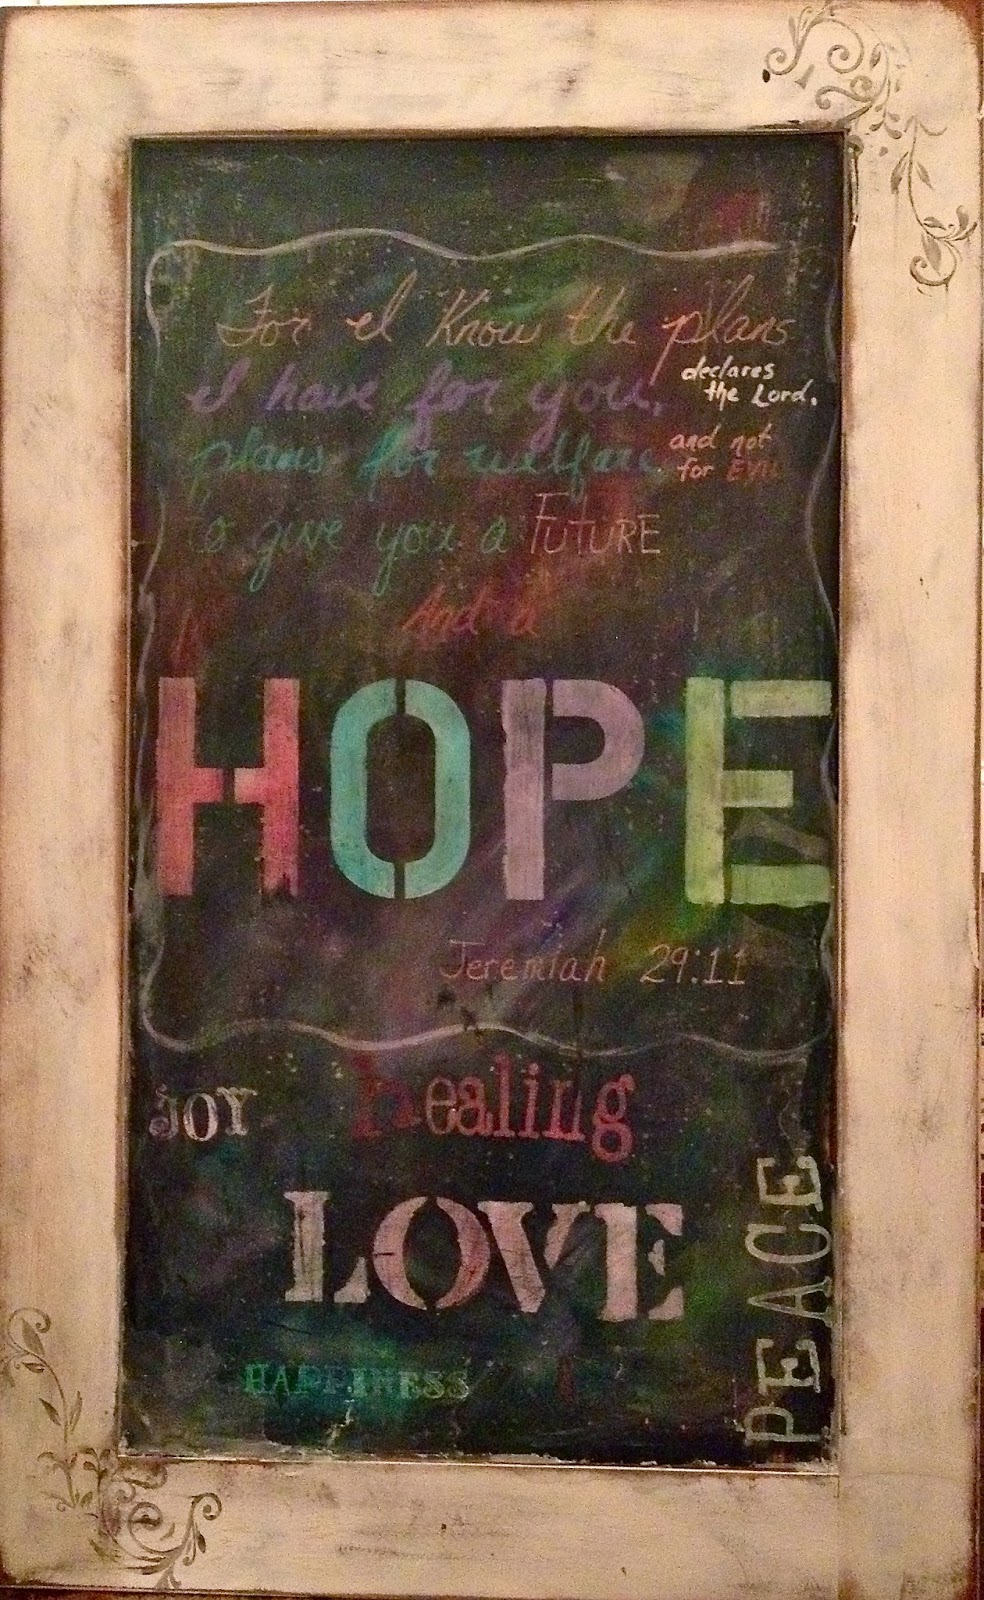 For I Know the plans
I have for you, declares the Lord,
plans for welfare, and not for Evil
to give you a FUTURE
And a
HOPE
Jeremiah 29:11
JOY healing
LOVE
PEACE
HAPPINESS